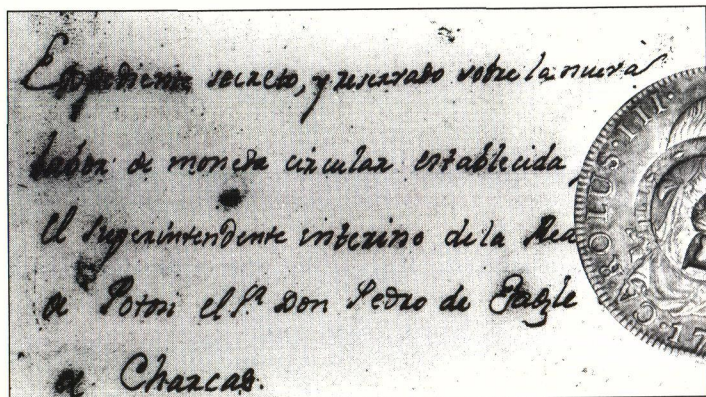 Expediente secreto, y reservado sobre la nueva
labor de moneda circular establecida
el Superintendente interino de la Rea
de Potosi el Sr. Don Pedro de
de Charcas.
CAROLUS·III·